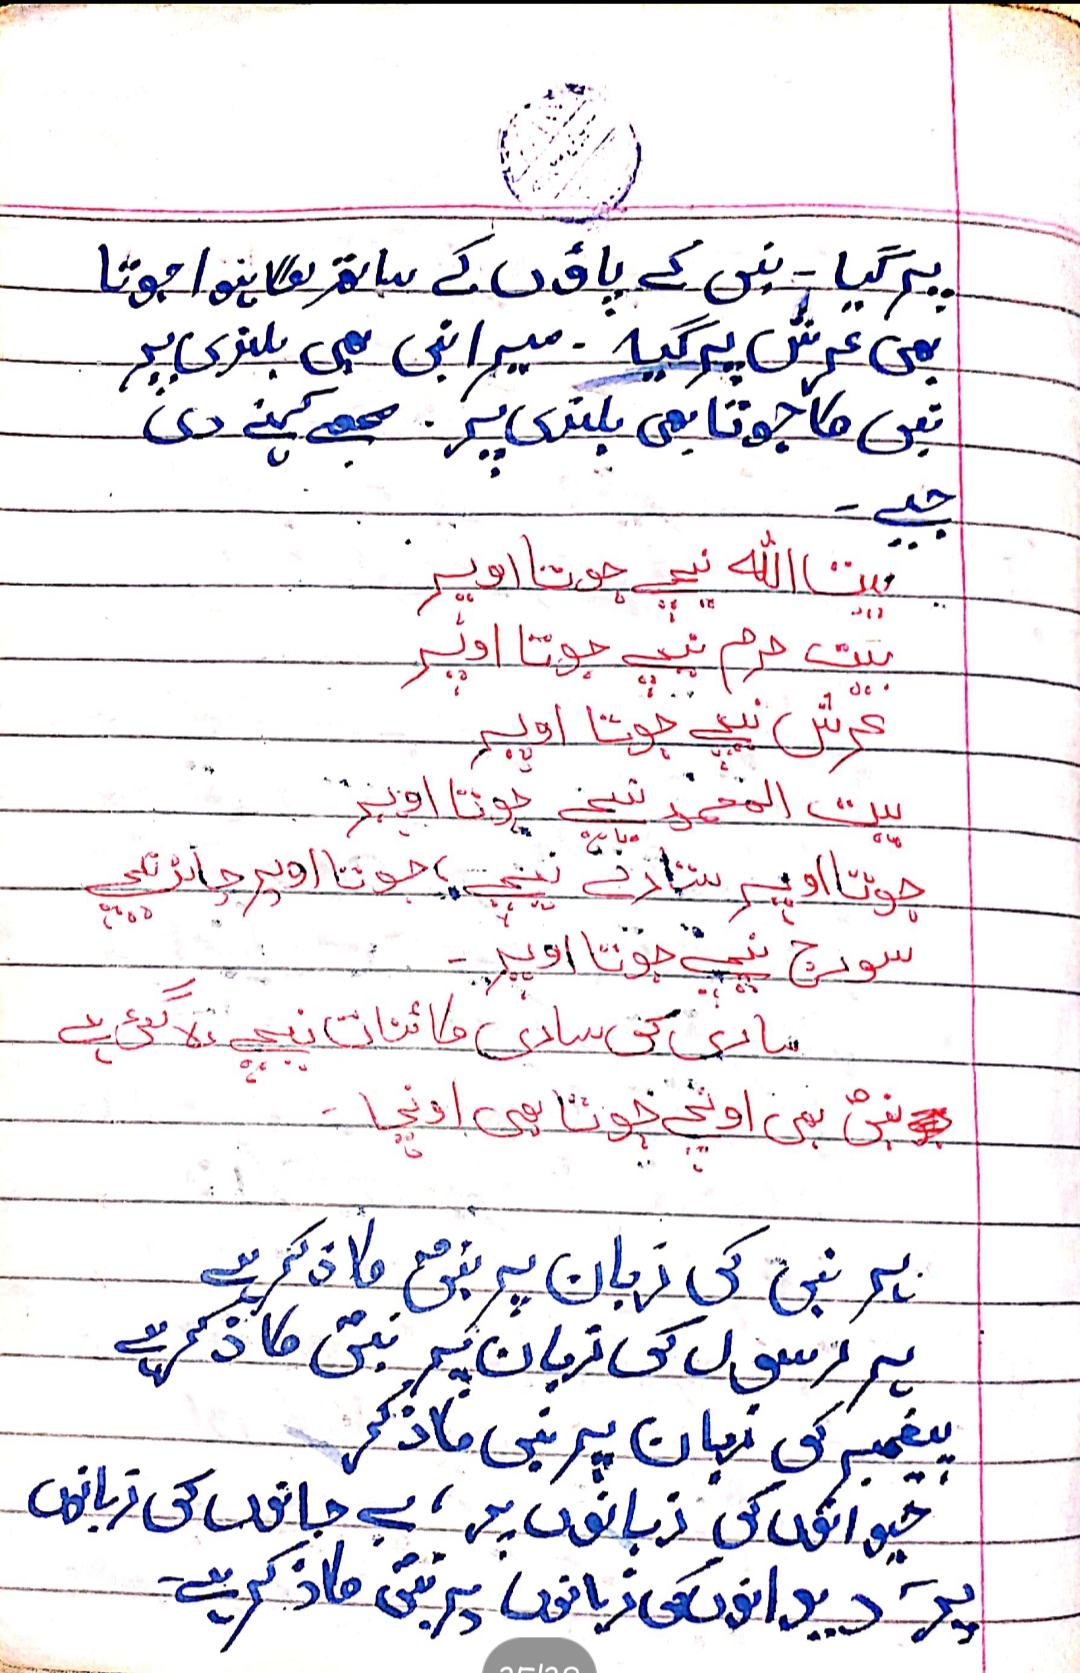 پر گیا - نبی کے پاؤں کے ساتھ لگا ہوا جوتا
بھی عرش پر گیا - میرا نبی بھی بلندی پر
نبی کا جوتا بھی بلندی پر - مجھے کہنے دی
جیے -
بیت اللہ نیچے جوتا اوپر
بیت حرم نیچے جوتا اوپر
عرش نیچے جوتا اوپر
بیت المعمور نیچے جوتا اوپر
جوتا اوپر ستارے نیچے ، جوتا اوپر چاند نیچے
سورج نیچے جوتا اوپر -
ساری کی ساری کائنات نیچے رہ گئی ہے
نبیؐ بھی اونچے جوتا بھی اونچا -
ہر نبی کی زبان پر نبیؐ کا ذکر ہے
ہر رسول کی زبان پر نبیؐ کا ذکر ہے
پیغمبر کی زبان پر نبی کا ذکر
حیوانوں کی زبانوں پر ، بے جانوں کی زبانوں
پر - دیوانوں کی زبانوں پر نبیؐ کا ذکر ہے -